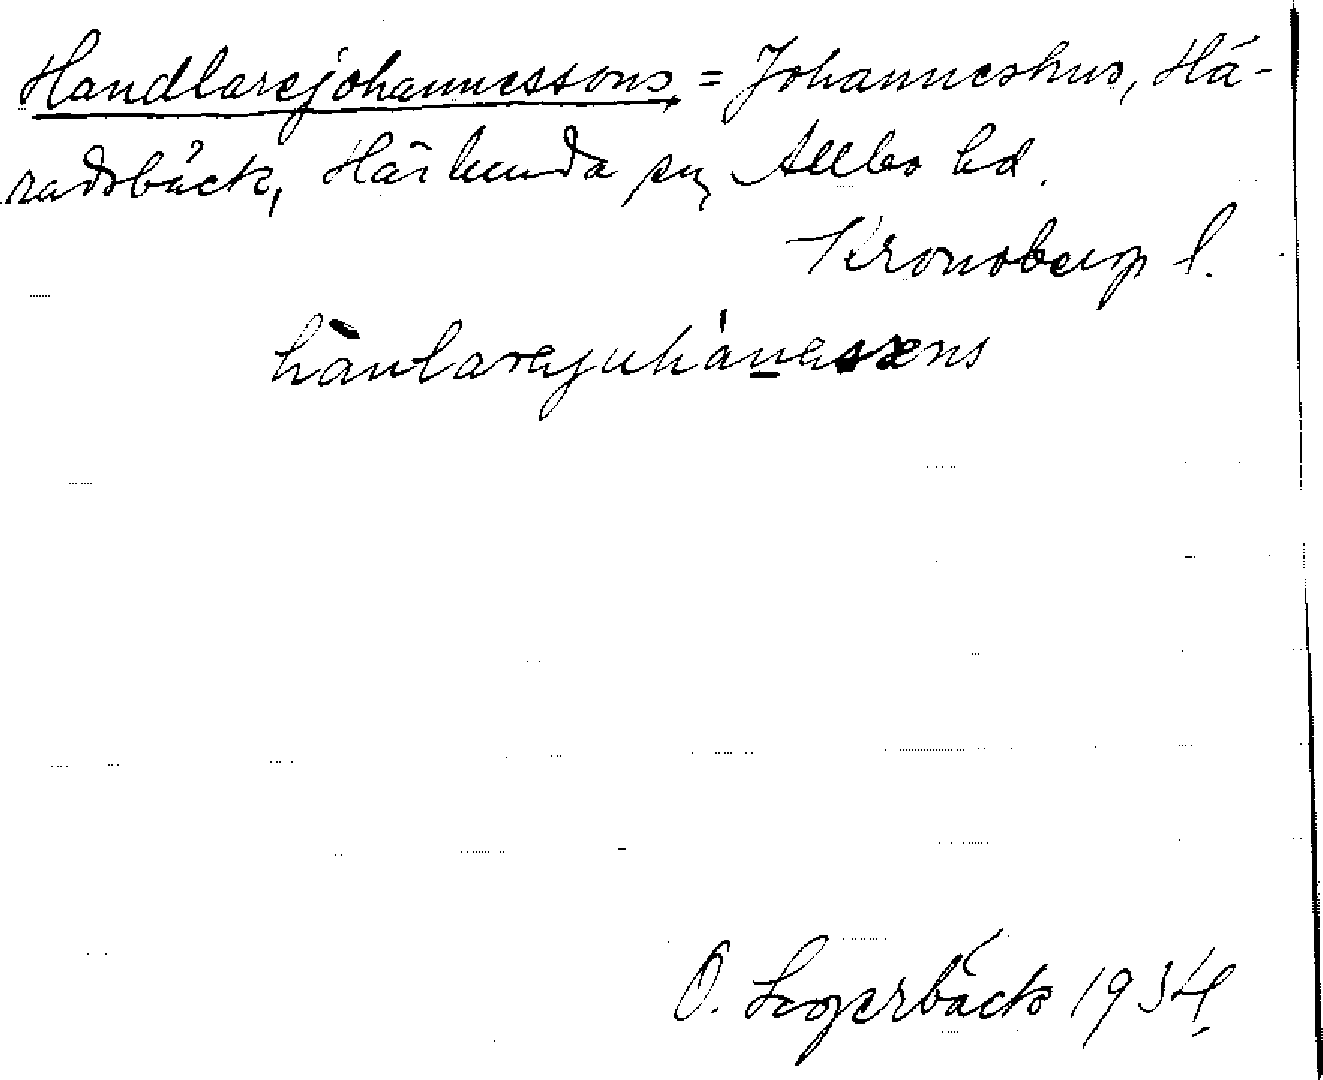 Handlarejohannessons, = Johanneshus, Hä-
radsbäck, Härlunda sn, Allbo hd.
Kronoberg l.
hànlarejuhánassens
O. Segerbäck 1934